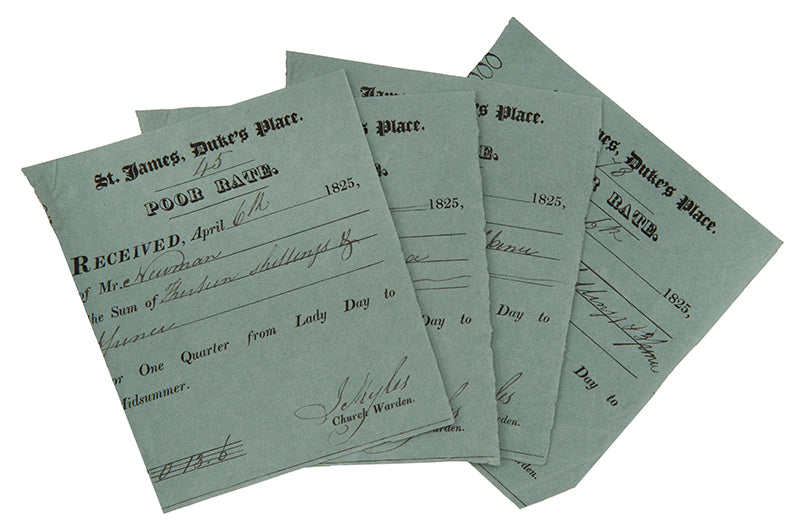 St. James, Duke's Place.
45
POOR RATE.
RECEIVED, April 6th 1825,
of Mr. Newman
the Sum of Thirteen Shillings &
6 Pence
or One Quarter from Lady Day to
Midsummer.
Church Warden.
0 13.6
James, Duke's Place.
1825,
Day to
arden.
James, Duke's Place.
E.
1825,
Pence
Day to
arden.
000
es, Duke's Place.
8
OR RATE.
6th
1825,
Day to
n.